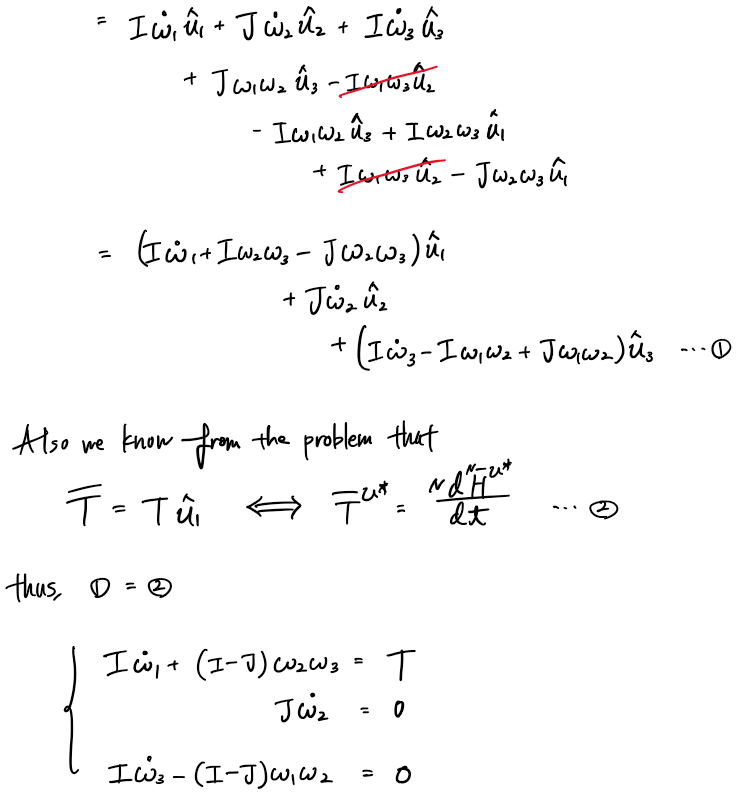 = Iω̇₁û₁ + Jω̇₂û₂ + Iω̇₃û₃
+ Jω₁ω₂û₃ - Iω₁ω₃û₂
- Iω₁ω₂û₃ + Iω₂ω₃û₁
+ Iω₁ω₃û₂ - Jω₂ω₃û₁
= (Iω̇₁ + Iω₂ω₃ - Jω₂ω₃)û₁
+ Jω̇₂û₂
+ (Iω̇₃ - Iω₁ω₂ + Jω₁ω₂)û₃ ... ①
Also we know from the problem that
T̿ = Tû₁ ⟺ T̅ᵘ* = ᴺdᴺH̅ᵘ*/dt ... ②
thus, ① = ②
Iω̇₁ + (I-J)ω₂ω₃ = T
Jω̇₂ = 0
Iω̇₃ - (I-J)ω₁ω₂ = 0